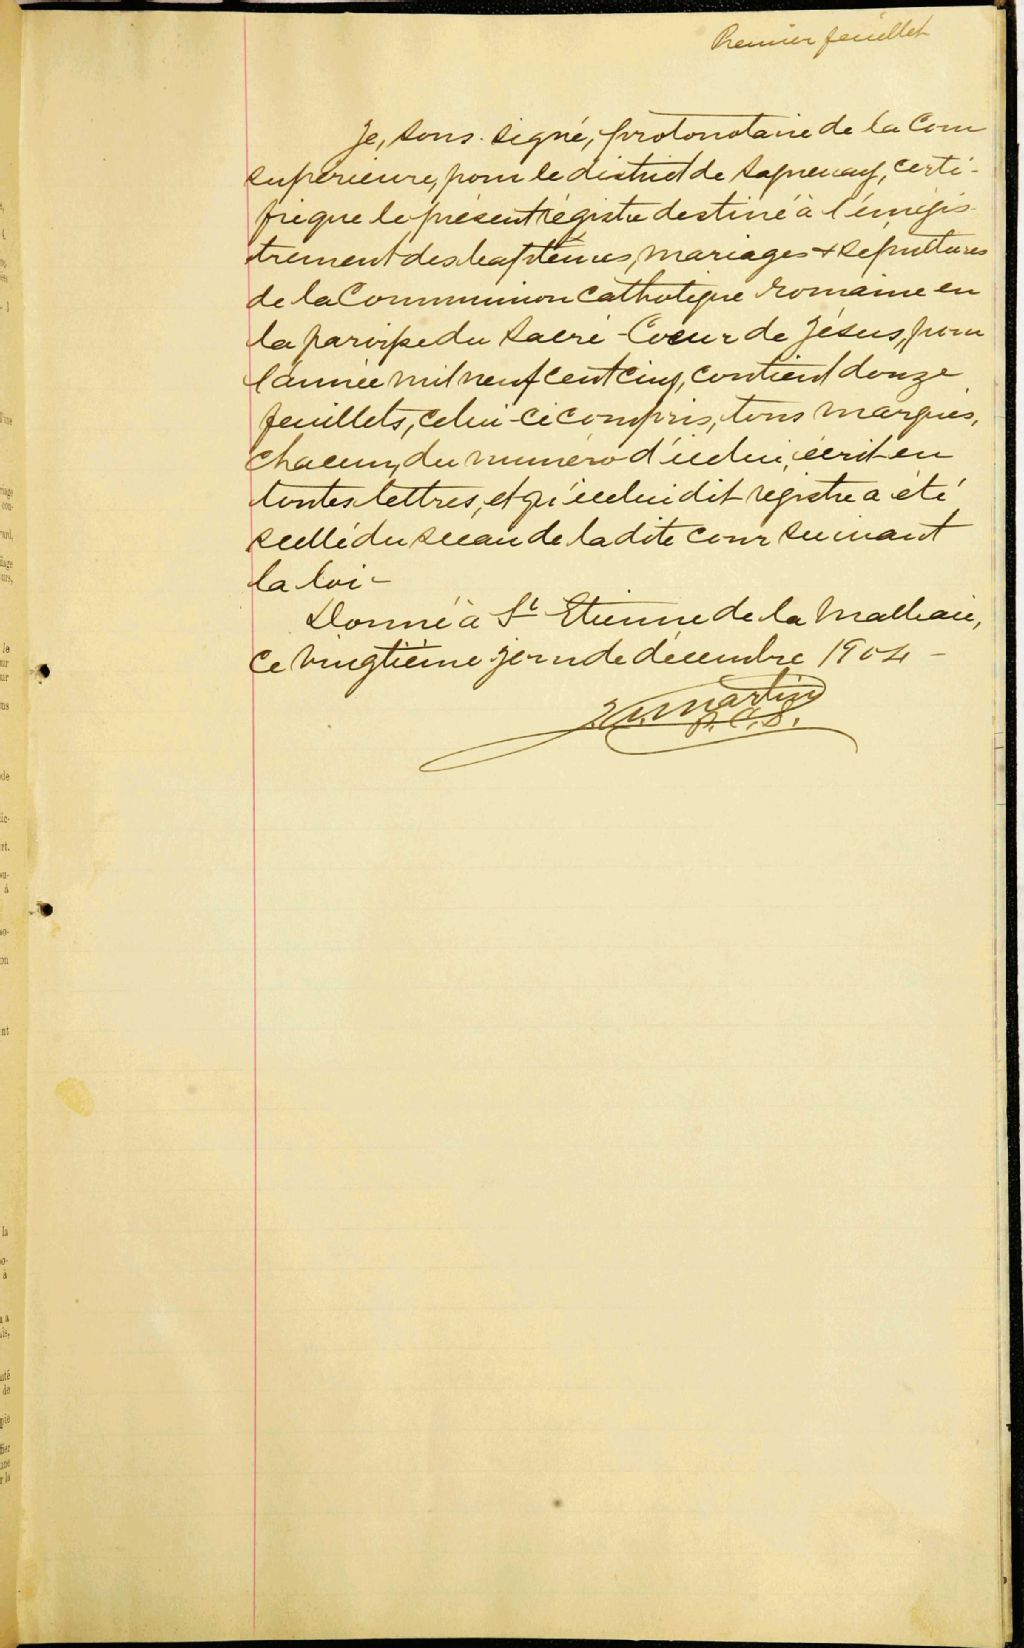 Premier feuillet
Je, sous-signé, protonotaire de la Cour
supérieure, pour le district de Saguenay, certi-
fie que le présent régistre destiné à l'énregis-
trement des baptêmes, mariages & sépultures
de la Communion catholique romaine en
la paroisse du Sacré-Coeur de Jésus, pour
l'année mil neuf cent cinq, contient douze
feuillets, celui-ci compris, tous marqués,
chacun, du numéro d'icelui, écrit en
toutes lettres, et qu'icelui dit registre a été
scellé du sceau de la dite cour suivant
la loi -
Donné à St Etienne de la Malbaie,
ce vingtième jour de décembre 1904 -
Martin
P. C. S.